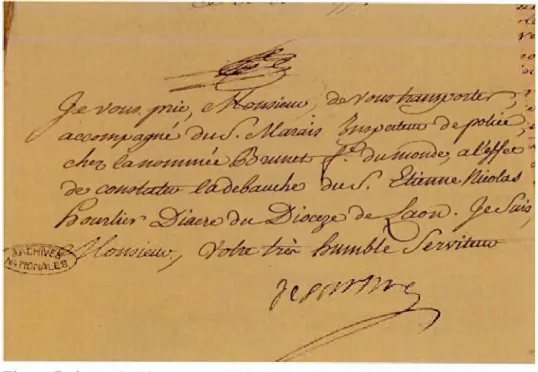 Je vous prie, Monsieur, de vous transporter,
accompagné du S. Marais Inspecteur de police,
chez la nommée Brunet f.e du monde, a l'effet
de constater la debauche du S. Etienne Nicolas
hourlier Diacre du Dioceze de Laon. Je suis,
Monsieur, Votre très humble Serviteur
ARCHIVES
NATIONALES